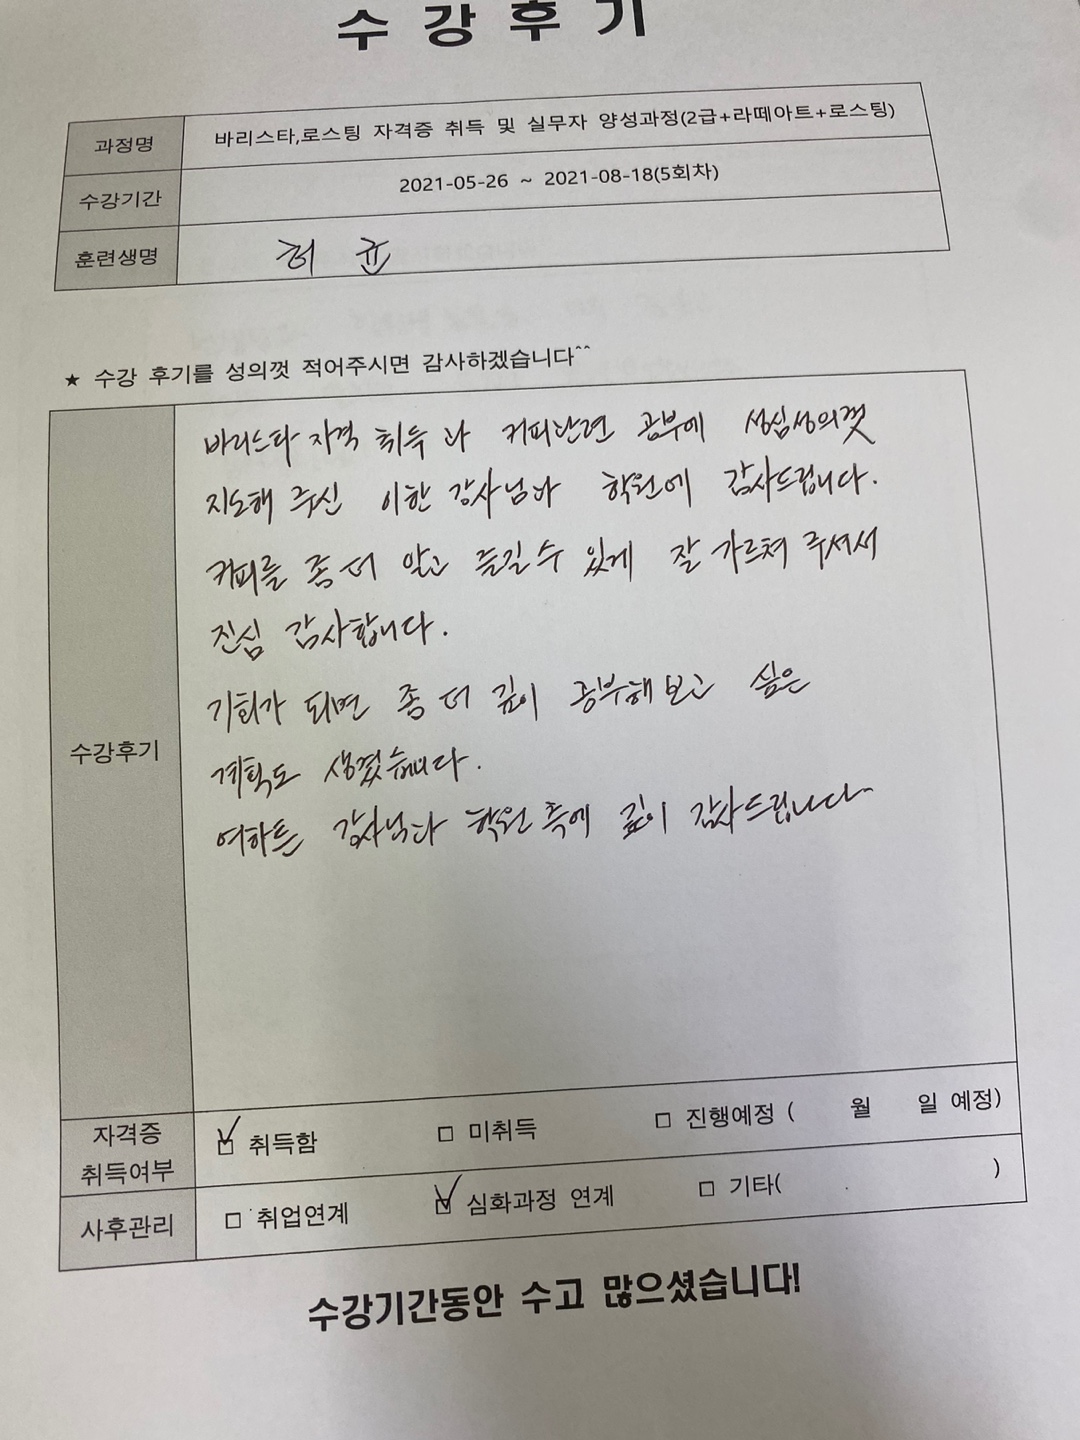 수강후기
과정명 바리스타,로스팅 자격증 취득 및 실무자 양성과정(2급+라떼아트+로스팅)
수강기간 2021-05-26 ~ 2021-08-18(5회차)
훈련생명 허 균
★ 수강 후기를 성의껏 적어주시면 감사하겠습니다^^
수강후기
바리스타 자격 취득 과 커피관련 공부에 성심성의껏
지도해 주신 이한 강사님과 학원에 감사드립니다.
커피를 좀 더 알고 즐길 수 있게 잘 가르쳐 주셔서
진심 감사합니다.
기회가 되면 좀 더 깊이 공부해 보고 싶은
계획도 생겼습니다.
여하튼 강사님과 학원 측에 깊이 감사드립니다~
자격증 취득여부 ☑ 취득함 □ 미취득 □ 진행예정 ( 월 일 예정)
사후관리 □ 취업연계 ☑ 심화과정 연계 □ 기타( )
수강기간동안 수고 많으셨습니다!